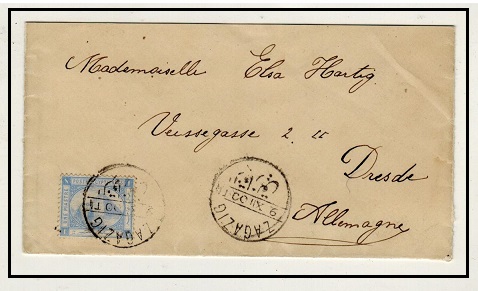 Mademoiselle Elsa Hartig
Veissegasse 2 II
Dresde
Allemagne
ZAGAZIG
ZAGAZIG